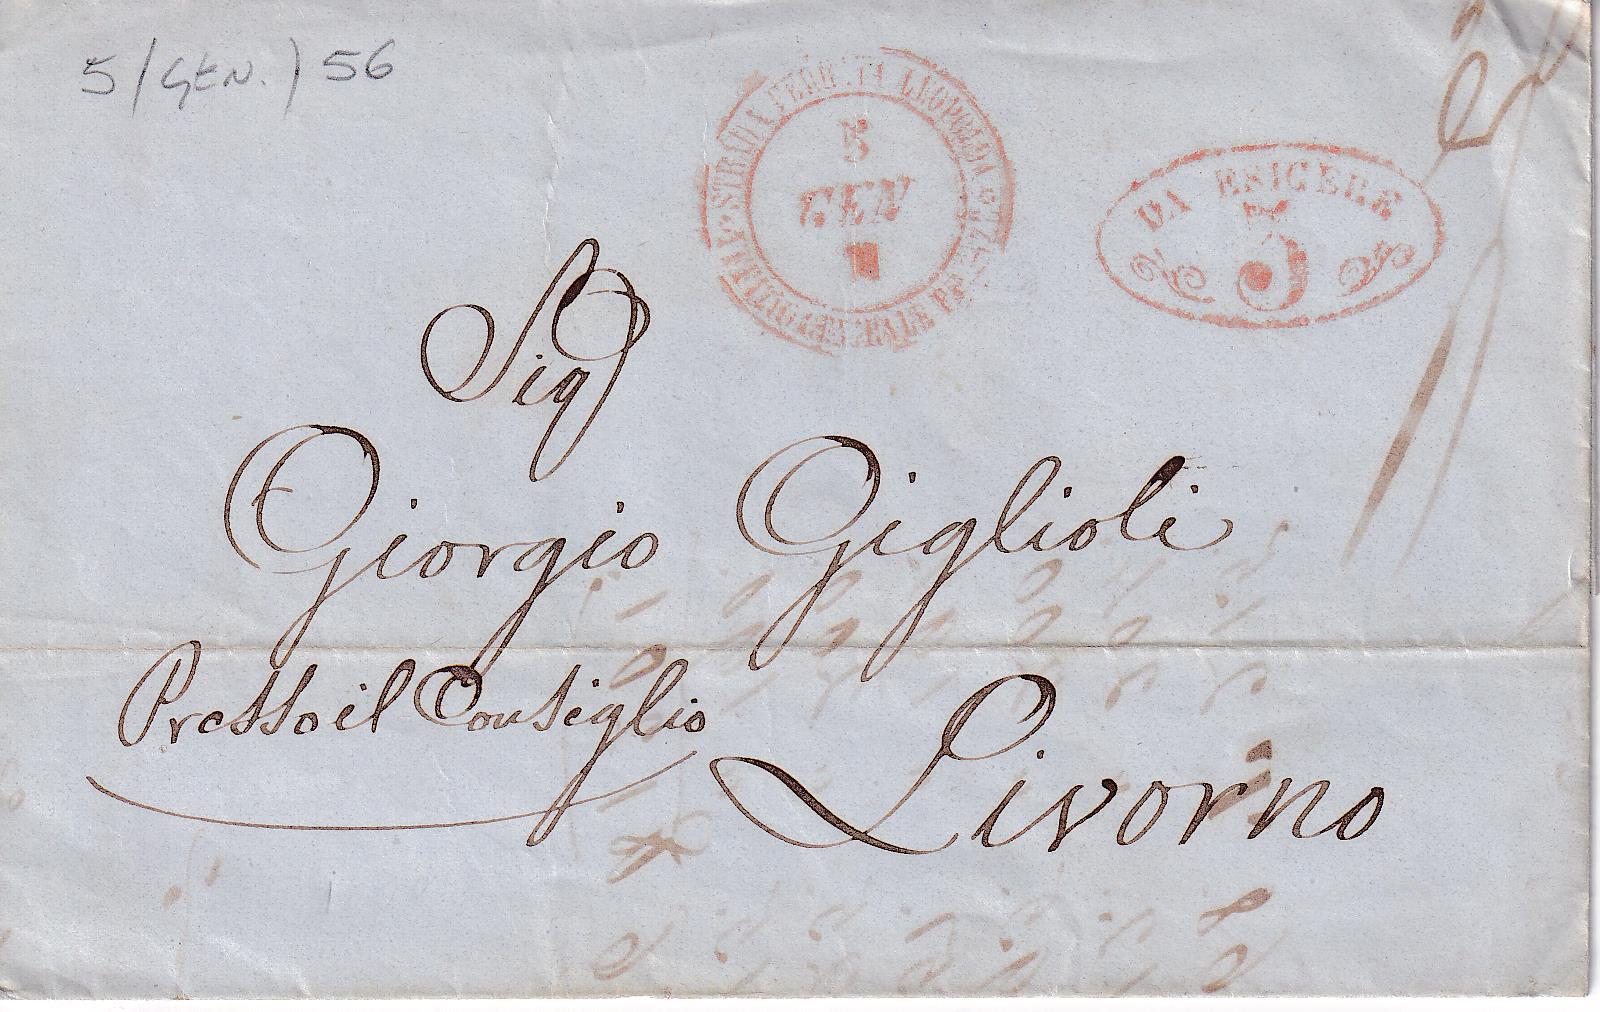 5/GEN./56
STRADA FERRATA LEOPOLDA
5
GEN
DA ESIGERE
3
Sig
Giorgio Giglioli
Presso il Consiglio
Livorno